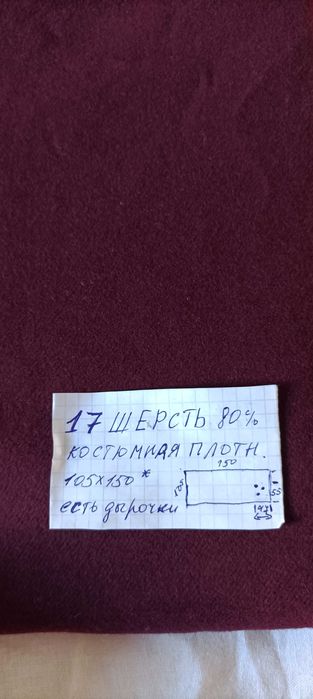 17 ШЕРСТЬ 80%
КОСТЮМНАЯ ПЛОТН.
105Х150*
есть дырочки
150
105
55